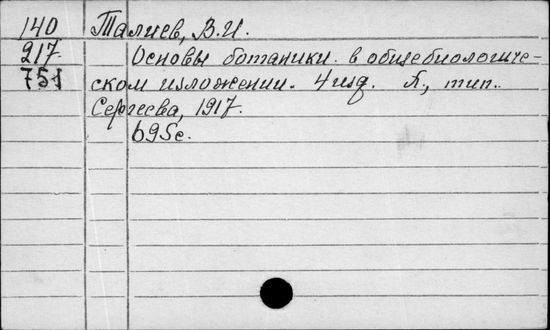 140 Талиев, В.И.
217 Основы ботаники в общебиологиче-
751 ском изложении. 4 изд. П., тип.
Сергеева, 1917.
695 с.